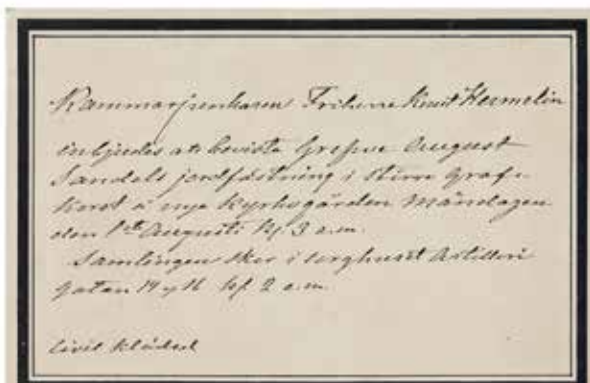 Kammarjunkaren Friherre Knut Hermelin
inbjudes att bevista Grefve August
Sandels jordfästning i större graf-
koret å nya Kyrkogården Måndagen
den 1sta Augusti kl 3 e.m.
Samlingen sker i sorghuset Artilleri
gatan 19 kl 2 e.m.
Civil klädsel